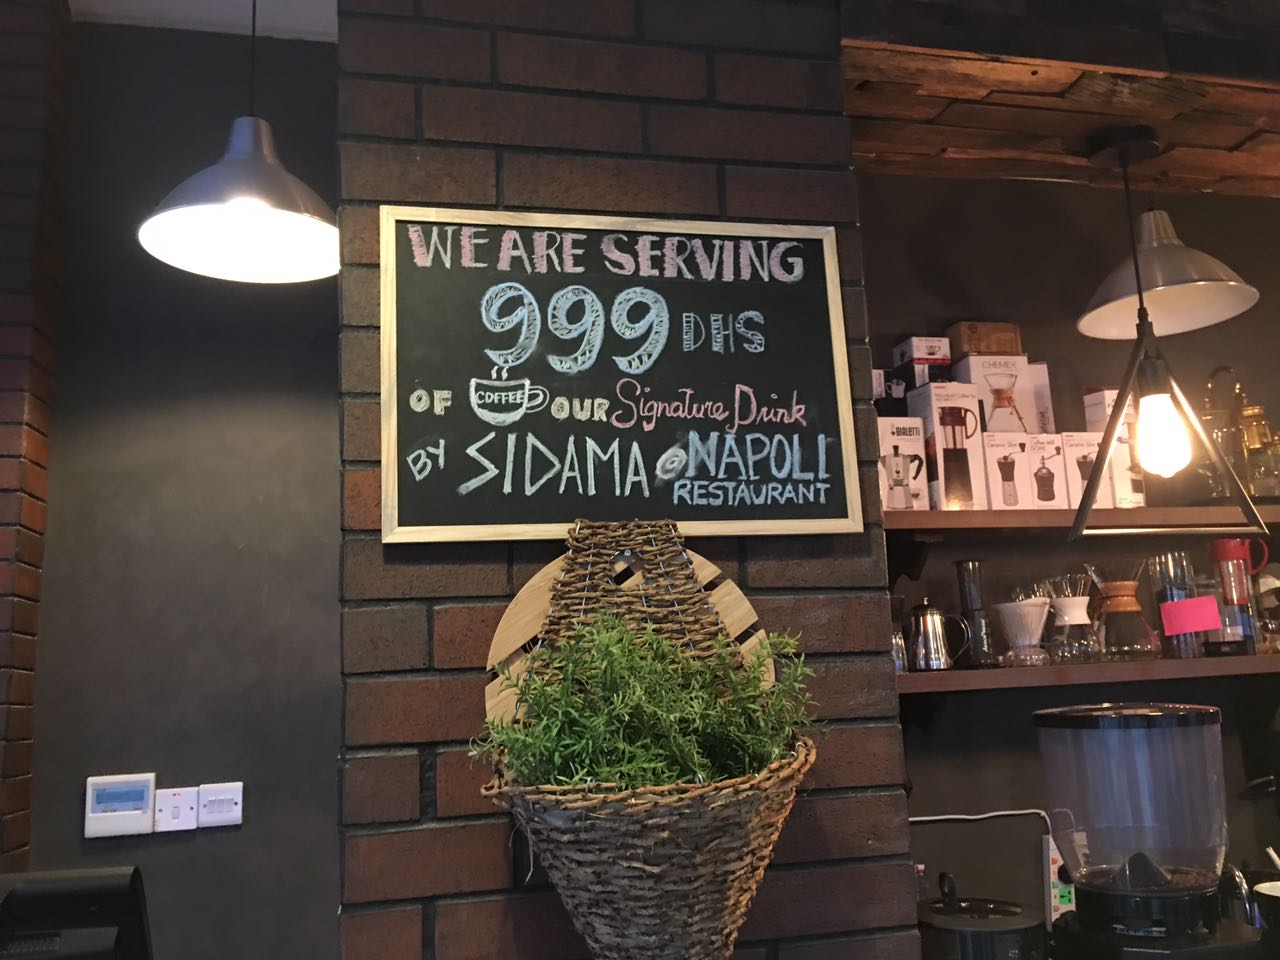 WE ARE SERVING
999 DHS
OF COFFEE OUR Signature Drink
BY SIDAMA @ NAPOLI
RESTAURANT
CHEMEX
BIALETTI